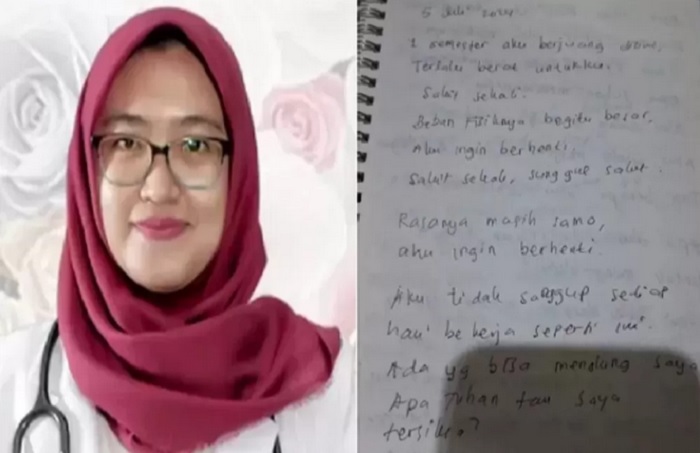 5 Juli
1 semester aku berjuang disini,
Terlalu berat untukku.
Sakit sekali.
Beban fisiknya begitu besar,
Aku ingin berhenti.
Sakit sekali, sungguh sakit.
Rasanya masih sama,
aku ingin berhenti.
Aku tidak sanggup setiap
hari bekerja seperti ini.
Ada yg bisa menolong saya
Apa Tuhan tau saya
tersiksa?